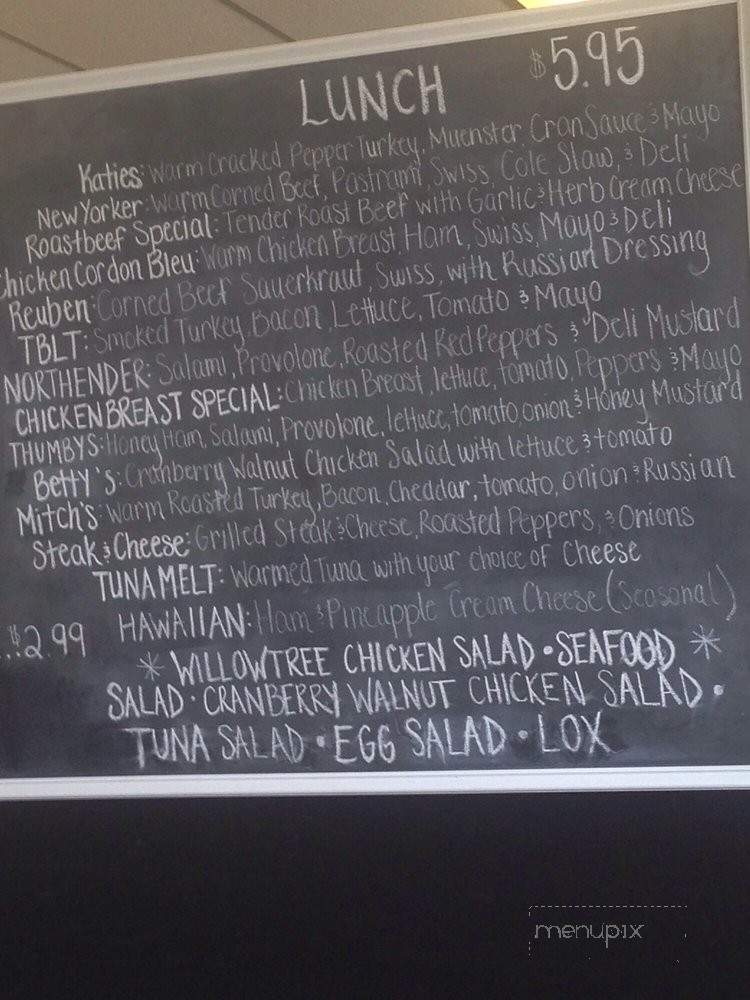 LUNCH $5.95
Katies: Warm Cracked Pepper Turkey, Muenster, Cran Sauce & Mayo
New Yorker: Warm Corned Beef, Pastrami, Swiss, Cole Slaw, & Deli
Roastbeef Special: Tender Roast Beef with Garlic & Herb Cream Cheese
Chicken Cordon Bleu: Warm Chicken Breast, Ham, Swiss, Mayo & Deli
Reuben: Corned Beef, Sauerkraut, Swiss, with Russian Dressing
TBLT: Smoked Turkey, Bacon, Lettuce, Tomato & Mayo
NORTHENDER: Salami, Provolone, Roasted Red Peppers & Deli Mustard
CHICKEN BREAST SPECIAL: Chicken Breast, lettuce, tomato, Peppers & Mayo
THUMBYS: Honey Ham, Salami, Provolone, lettuce, tomato, onion & Honey Mustard
Betty's: Cranberry Walnut Chicken Salad with lettuce & tomato
Mitch's: Warm Roasted Turkey, Bacon, Cheddar, tomato, onion & Russian
Steak & Cheese: Grilled Steak & Cheese, Roasted Peppers, & Onions
TUNA MELT: Warmed Tuna with your choice of Cheese
HAWAIIAN: Ham & Pineapple Cream Cheese (Seasonal)
..$2.99
* WILLOWTREE CHICKEN SALAD • SEAFOOD *
SALAD • CRANBERRY WALNUT CHICKEN SALAD •
TUNA SALAD • EGG SALAD • LOX
menupix